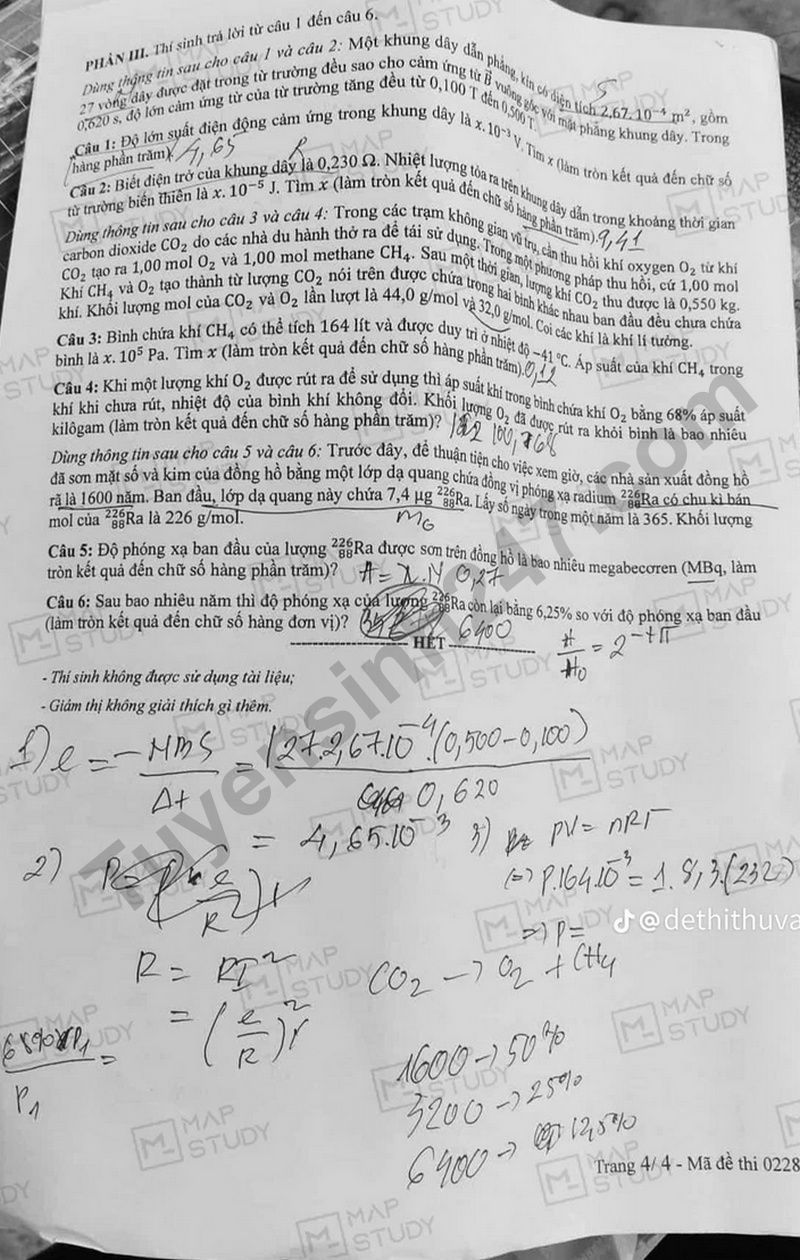 PHẦN III. Thí sinh trả lời từ câu 1 đến câu 6.
Dùng thông tin sau cho câu 1 và câu 2: Một khung dây dẫn phẳng, kín có diện tích 2,67.10⁻⁴ m², gồm
27 vòng dây được đặt trong từ trường đều sao cho cảm ứng từ B vuông góc với mặt phẳng khung dây. Trong
0,620 s, độ lớn cảm ứng từ của từ trường tăng đều từ 0,100 T đến 0,500 T.
Câu 1: Độ lớn suất điện động cảm ứng trong khung dây là x.10⁻³ V. Tìm x (làm tròn kết quả đến chữ số
hàng phần trăm). 4,65
Câu 2: Biết điện trở của khung dây là 0,230 Ω. Nhiệt lượng tỏa ra trên khung dây dẫn trong khoảng thời gian
từ trường biến thiên là x.10⁻⁵ J. Tìm x (làm tròn kết quả đến chữ số hàng phần trăm). 9,41
Dùng thông tin sau cho câu 3 và câu 4: Trong các trạm không gian vũ trụ, cần thu hồi khí oxygen O₂ từ khí
carbon dioxide CO₂ do các nhà du hành thở ra để tái sử dụng. Trong một phương pháp thu hồi, cứ 1,00 mol
CO₂ tạo ra 1,00 mol O₂ và 1,00 mol methane CH₄. Sau một thời gian, lượng khí CO₂ thu được là 0,550 kg.
Khí CH₄ và O₂ tạo thành từ lượng CO₂ nói trên được chứa trong hai bình khác nhau ban đầu đều chưa chứa
khí. Khối lượng mol của CO₂ và O₂ lần lượt là 44,0 g/mol và 32,0 g/mol. Coi các khí là khí lí tưởng.
Câu 3: Bình chứa khí CH₄ có thể tích 164 lít và được duy trì ở nhiệt độ −41 °C. Áp suất của khí CH₄ trong
bình là x.10⁵ Pa. Tìm x (làm tròn kết quả đến chữ số hàng phần trăm). 0,12
Câu 4: Khi một lượng khí O₂ được rút ra để sử dụng thì áp suất khí trong bình chứa khí O₂ bằng 68% áp suất
khí khi chưa rút, nhiệt độ của bình khí không đổi. Khối lượng O₂ đã được rút ra khỏi bình là bao nhiêu
kilôgam (làm tròn kết quả đến chữ số hàng phần trăm)?
Dùng thông tin sau cho câu 5 và câu 6: Trước đây, để thuận tiện cho việc xem giờ, các nhà sản xuất đồng hồ
đã sơn mặt số và kim của đồng hồ bằng một lớp dạ quang chứa đồng vị phóng xạ radium ²²⁶₈₈Ra có chu kì bán
rã là 1600 năm. Ban đầu, lớp dạ quang này chứa 7,4 µg ²²⁶₈₈Ra. Lấy số ngày trong một năm là 365. Khối lượng
mol của ²²⁶₈₈Ra là 226 g/mol.
Câu 5: Độ phóng xạ ban đầu của lượng ²²⁶₈₈Ra được sơn trên đồng hồ là bao nhiêu megabecơren (MBq, làm
tròn kết quả đến chữ số hàng phần trăm)? A = λ.N 0,27
Câu 6: Sau bao nhiêu năm thì độ phóng xạ của lượng ²²⁶₈₈Ra còn lại bằng 6,25% so với độ phóng xạ ban đầu
(làm tròn kết quả đến chữ số hàng đơn vị)? 6400
HẾT
H/H₀ = 2^(-t/T)
- Thí sinh không được sử dụng tài liệu;
- Giám thị không giải thích gì thêm.
1) e = −NBS/Δt = |27.2,67.10⁻⁴.(0,500−0,100)/0,620
= 4,65.10⁻³
2)
R = RI²
= (e/R)²r
68%P₁/P₁ =
3) PV = nRT
⇔ P.164.10⁻³ = 1.8,3.(232)
⇒ P =
CO₂ → O₂ + CH₄
1600 → 50%
3200 → 25%
6400 → 12,5%
@dethithuva
Trang 4/ 4 - Mã đề thi 0228
Tuyensinh247.com
MAP STUDY